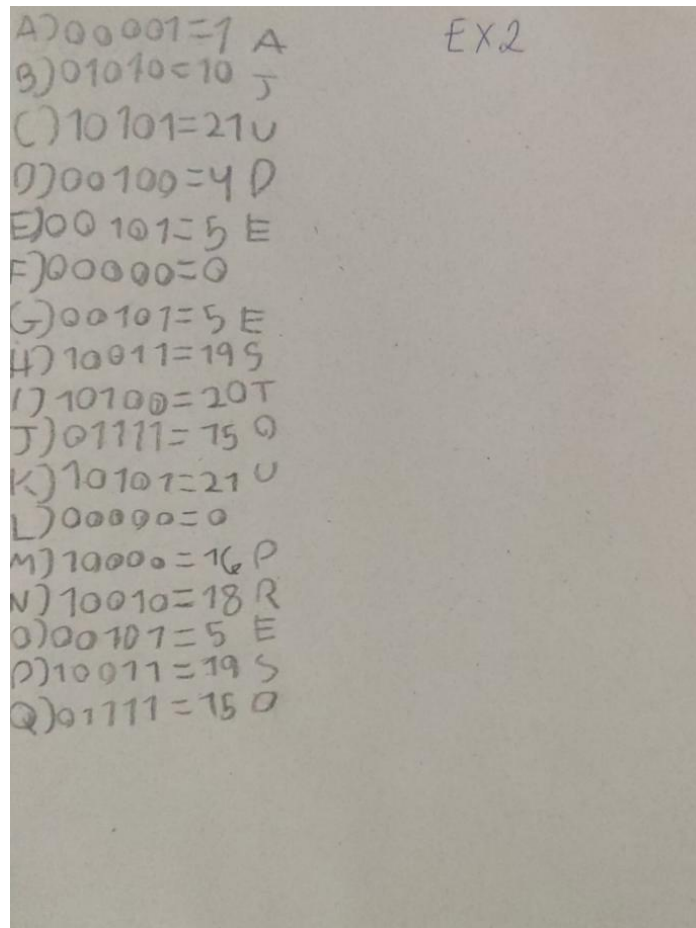 A)00001=1 A
EX2
B)01010=10 J
C)10101=21 U
D)00100=4 D
E)00101=5 E
F)00000=0
G)00101=5 E
H)10011=19 S
I)10100=20 T
J)01111=15 O
K)10101=21 U
L)00000=0
M)10000=16 P
N)10010=18 R
O)00101=5 E
P)10011=19 S
Q)01111=15 O